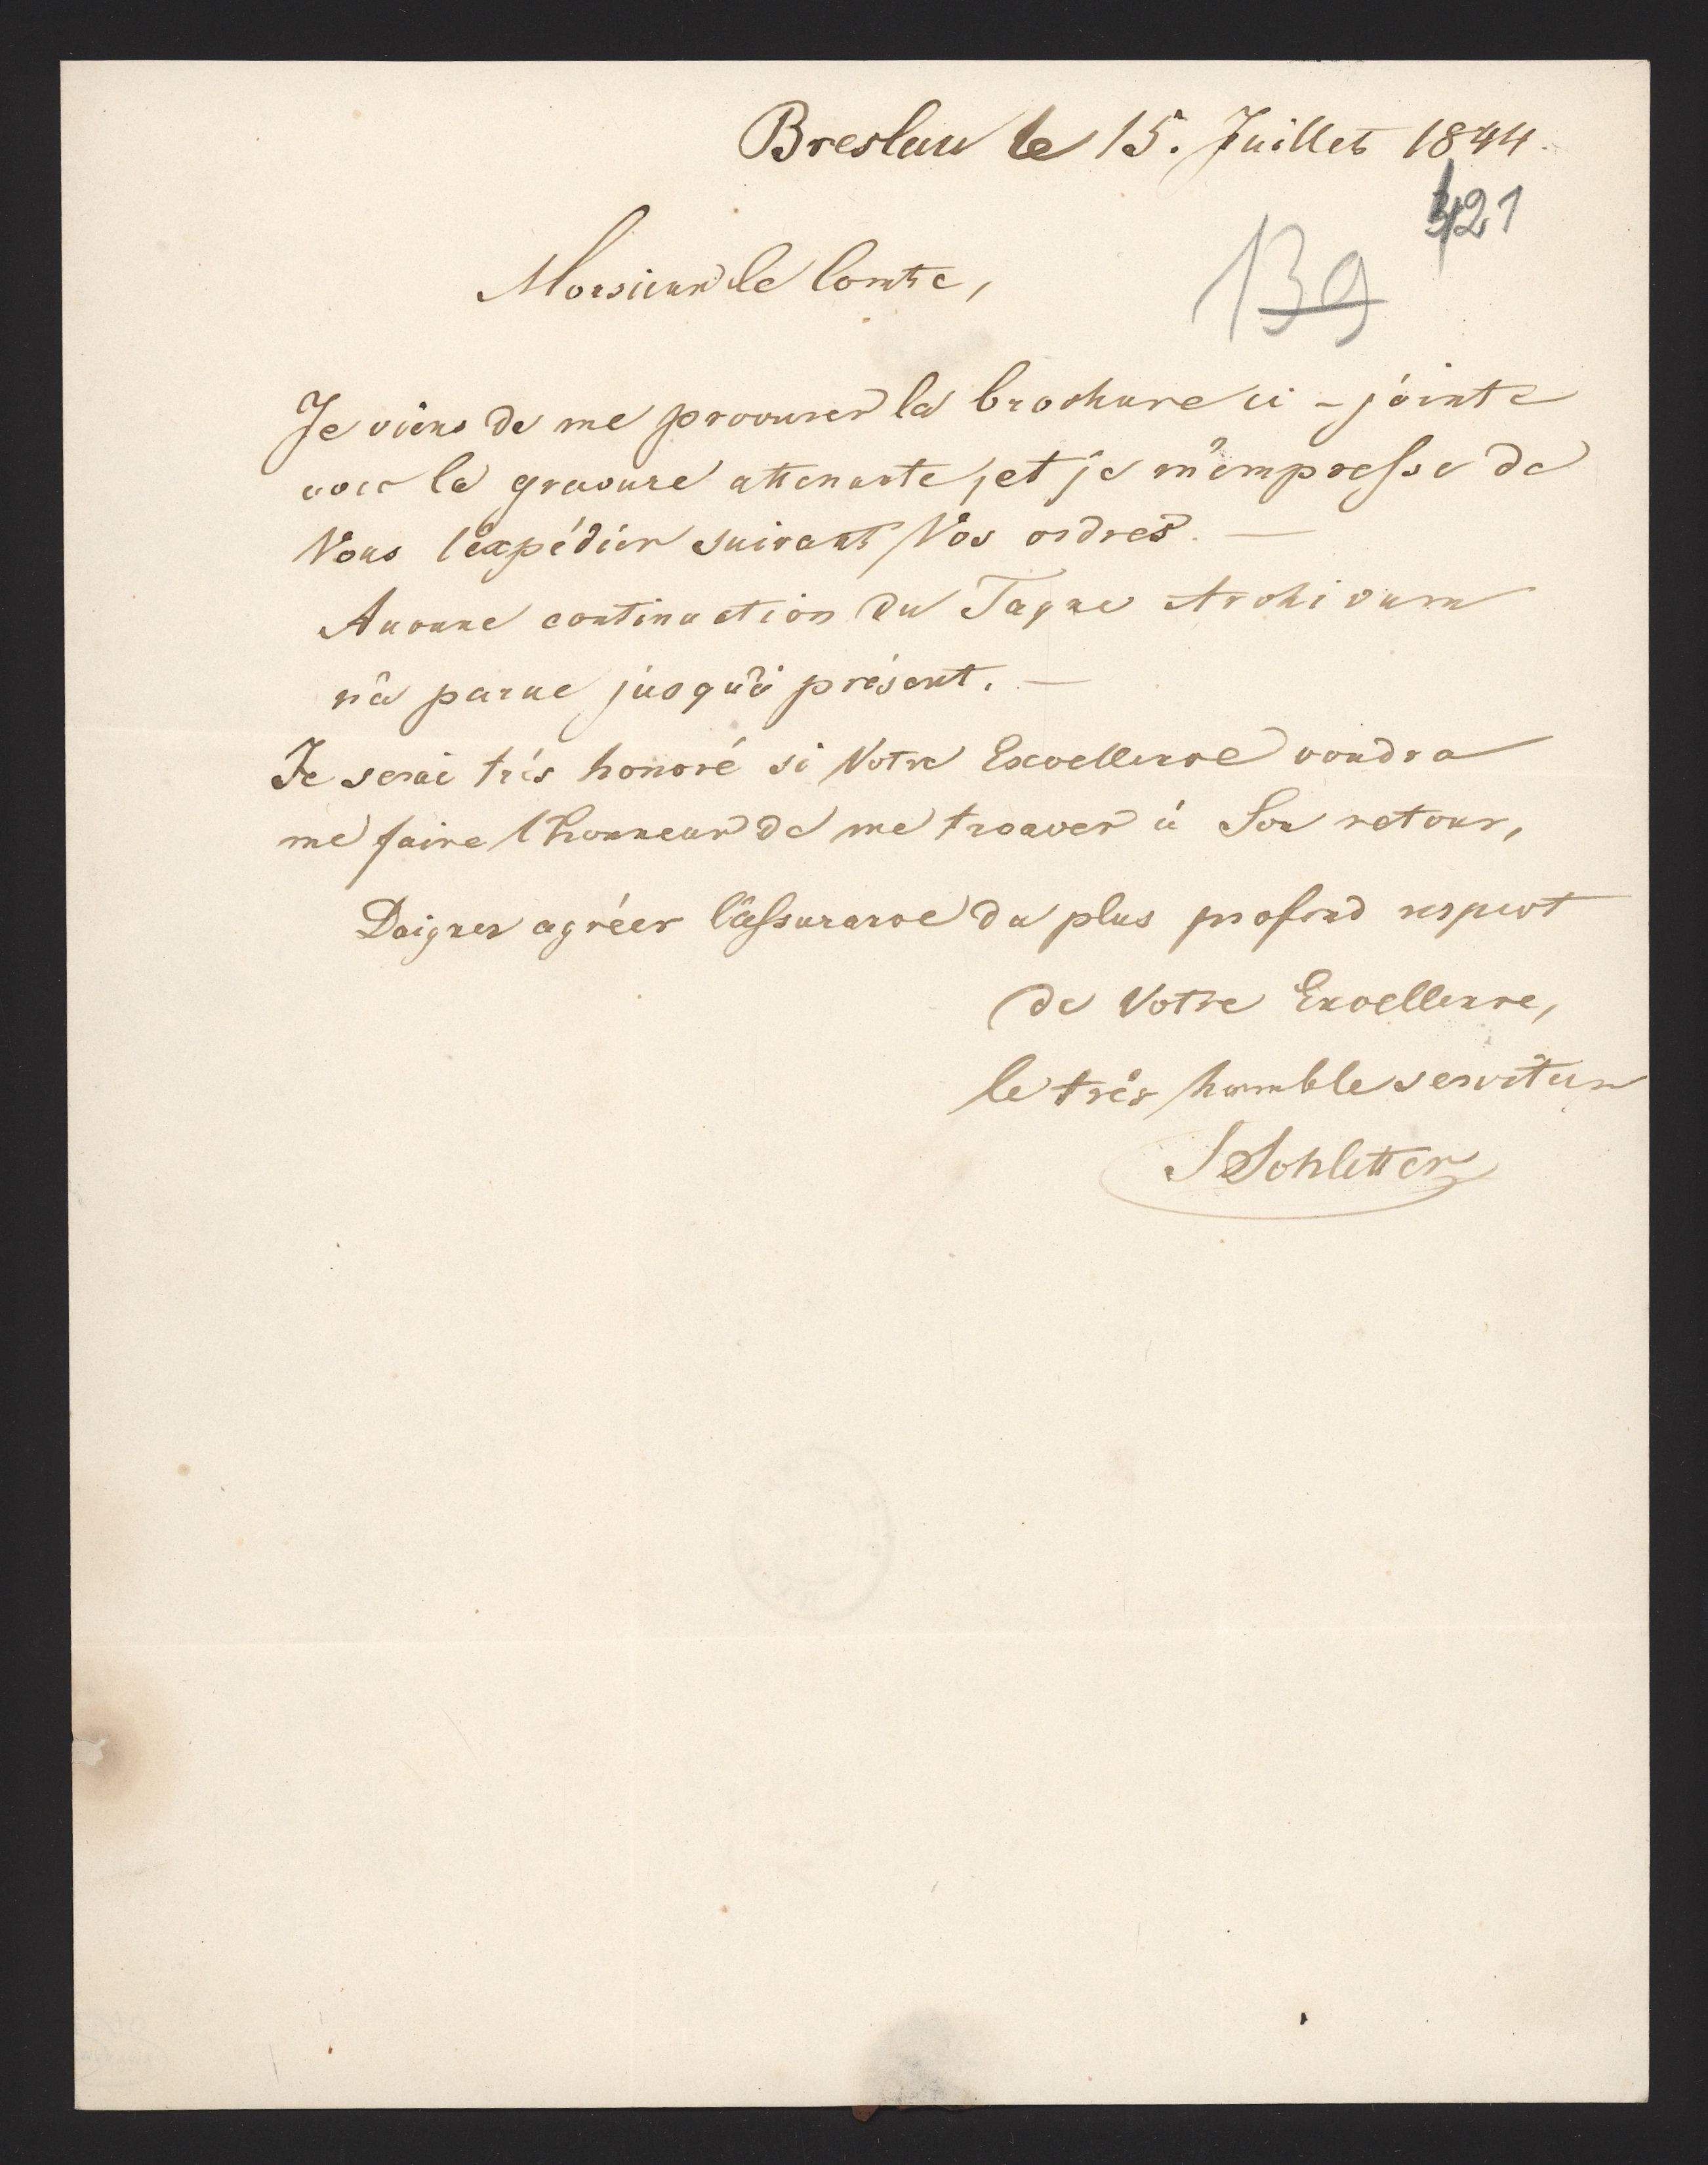 Breslau le 15. Juillet 1844.
421
139
Monsieur le Comte,
Je viens de me procurer la brochure ci-jointe
avec la gravure attenante, et je m'empresse de
Vous l'expédier suivant Vos ordres. —
Aucune continuation du Tagne Archivum
n'a parue jusqu'à présent. —
Je serai très honoré si Votre Excellence voudra
me faire l'honneur de me trouver à Son retour,
Daignez agréer l'assurance du plus profond respect
de Votre Excellence,
le très humble serviteur
S Schletter